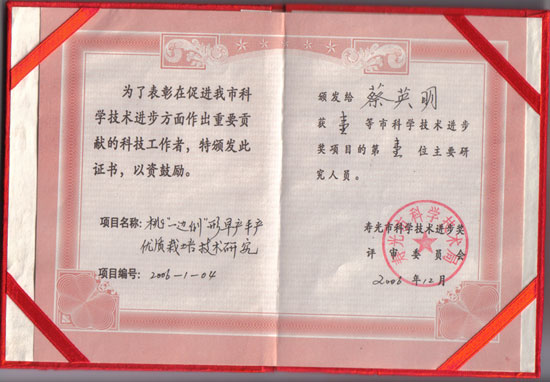 为了表彰在促进我市科
学技术进步方面作出重要贡
献的科技工作者，特颁发此
证书，以资鼓励。
项目名称：桃“一边倒”形早产丰产
优质栽培技术研究
项目编号：2006-1-04
颁发给 蔡英明
获 壹 等市科学技术进步
奖项目的第 壹 位主要研
究人员。
寿光市科学技术进步奖
评审委员会
2006年12月
寿光市科学技术局